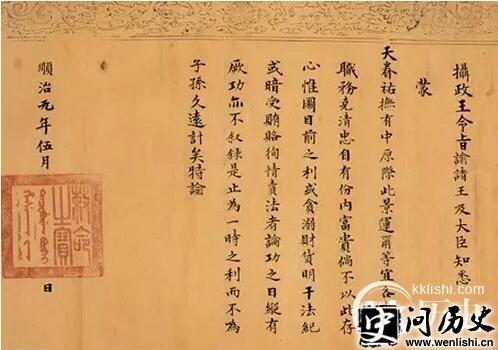 攝政王令旨諭諸王及大臣知悉
蒙
天眷祐撫有中原際此景運爾等宜各
職務克清忠自有份内富貴倘不以此存
心惟圖目前之利或貪溺財貨明干法紀
或暗受賄賂徇情賣法者論功之日縱有
厥功亦不敘錄是止為一時之利而不為
子孫久遠計矣特諭
順治元年伍月
日
敕命之寶
kklishi.com
问历史
www.wenlishi.cn